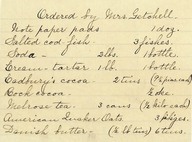 Ordered by Mrs. Getchell.
Note paper pads 1 doz.
Salted cod fish 3 fishes.
Soda - 2 lbs. 1 bottle.
Cream-tartar 1 lb. 1 bottle.
Cadbury's cocoa 2 tins
Rock cocoa
Melrose tea. 3 cans
American Quaker Oats 3 pkges.
Danish butter 6 tins.